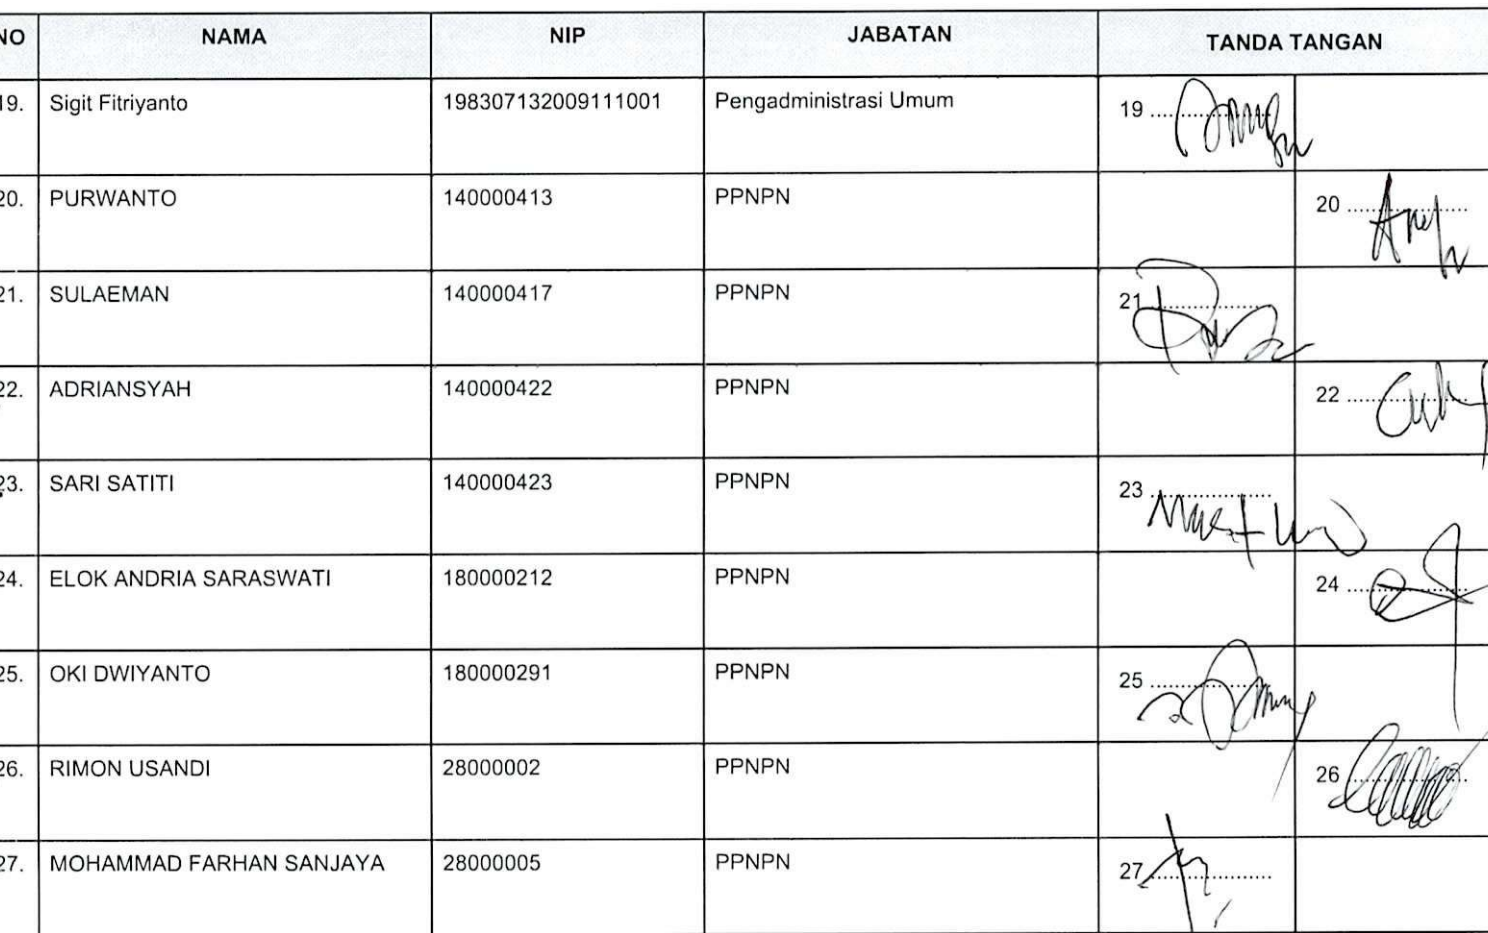 NO NAMA NIP JABATAN TANDA TANGAN
19. Sigit Fitriyanto 198307132009111001 Pengadministrasi Umum 19 ..................
20. PURWANTO 140000413 PPNPN 20 ..................
21. SULAEMAN 140000417 PPNPN 21 ..................
22. ADRIANSYAH 140000422 PPNPN 22 ..................
23. SARI SATITI 140000423 PPNPN 23 ..................
24. ELOK ANDRIA SARASWATI 180000212 PPNPN 24 ..................
25. OKI DWIYANTO 180000291 PPNPN 25 ..................
26. RIMON USANDI 28000002 PPNPN 26 ..................
27. MOHAMMAD FARHAN SANJAYA 28000005 PPNPN 27 ..................